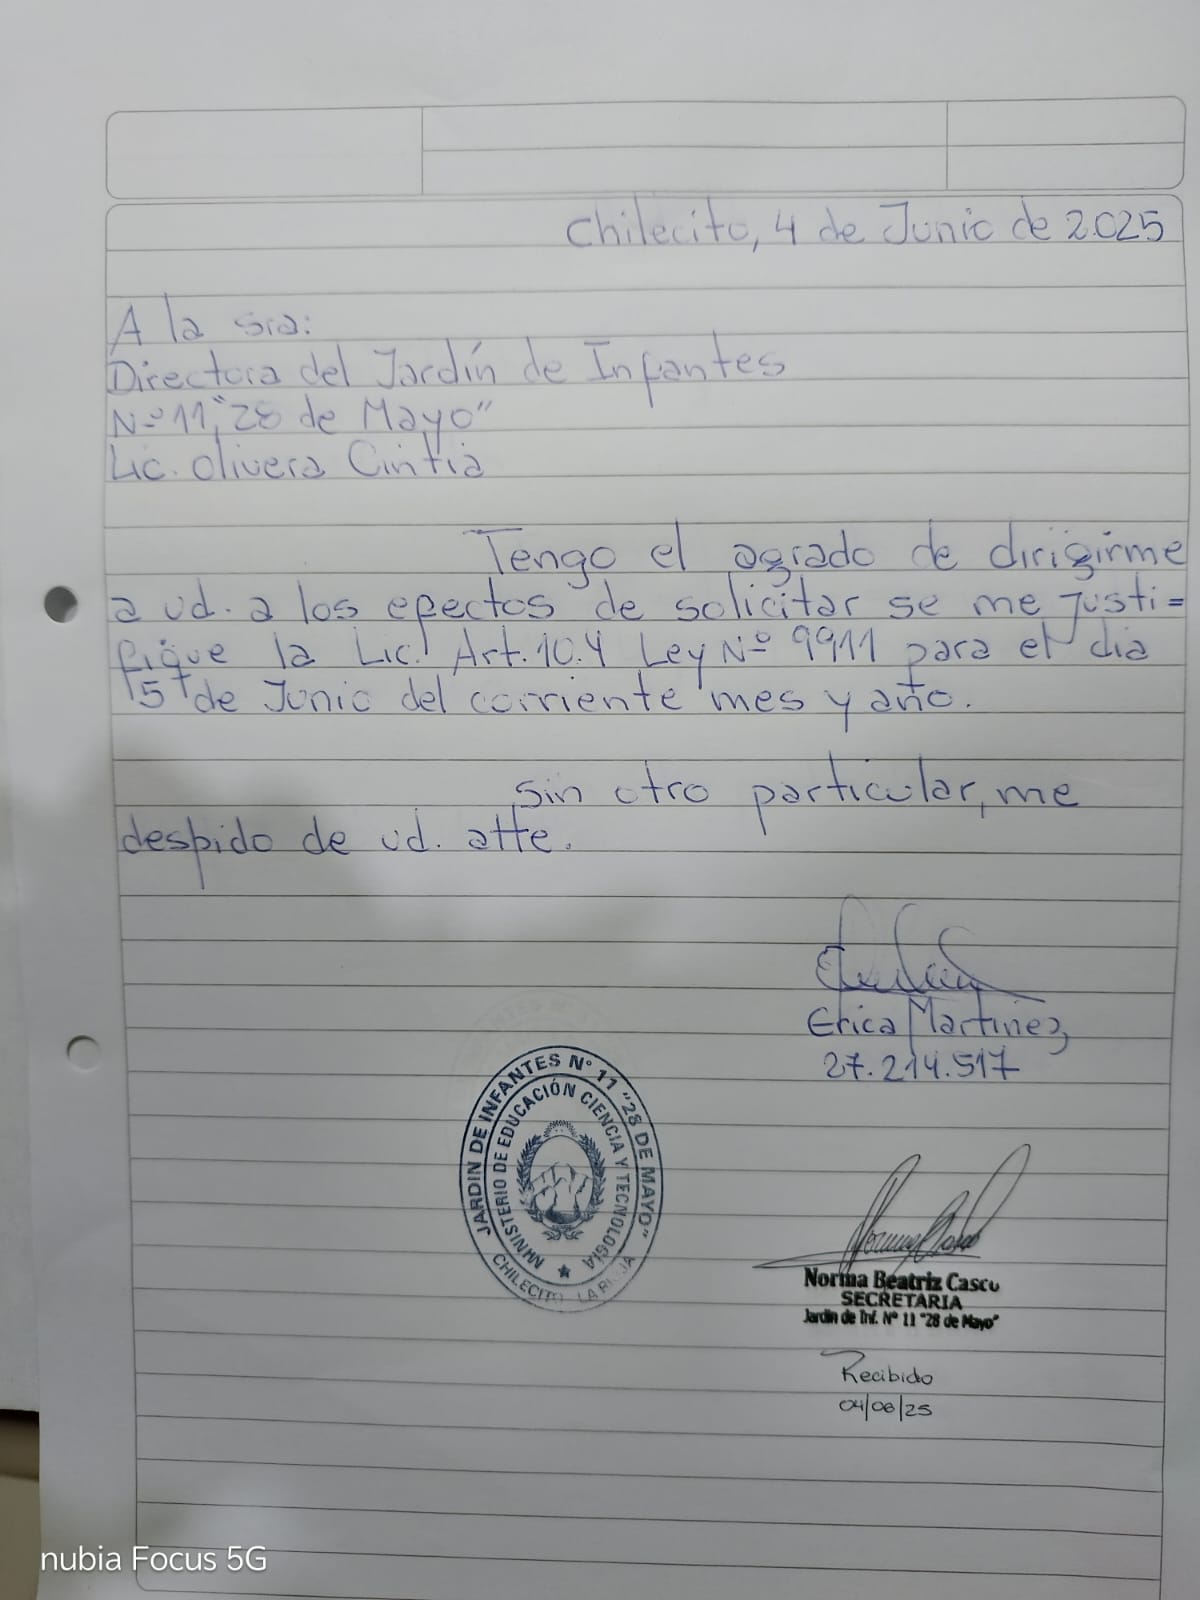 Chilecito, 4 de Junio de 2.025
A la sra:
Directora del Jardín de Infantes
N-º 11, "28 de Mayo"
Lic. Olivera Cintia
Tengo el agrado de dirigirme
a ud. a los efectos de solicitar se me justi=
fique la Lic. Art. 10.4 Ley Nº 9911 para el dia
5 de Junio del corriente mes y año.
Sin otro particular, me
despido de ud. atte.
Erica Martinez
27.214.517
JARDIN DE INFANTES N° 11 "28 DE MAYO"
MINISTERIO DE EDUCACIÓN CIENCIA Y TECNOLOGIA
CHILECITO LA RIOJA
Norma Beatriz Casco
SECRETARIA
Jardín de Inf. Nº 11 "28 de Mayo"
Recibido
04/06/25
nubia Focus 5G